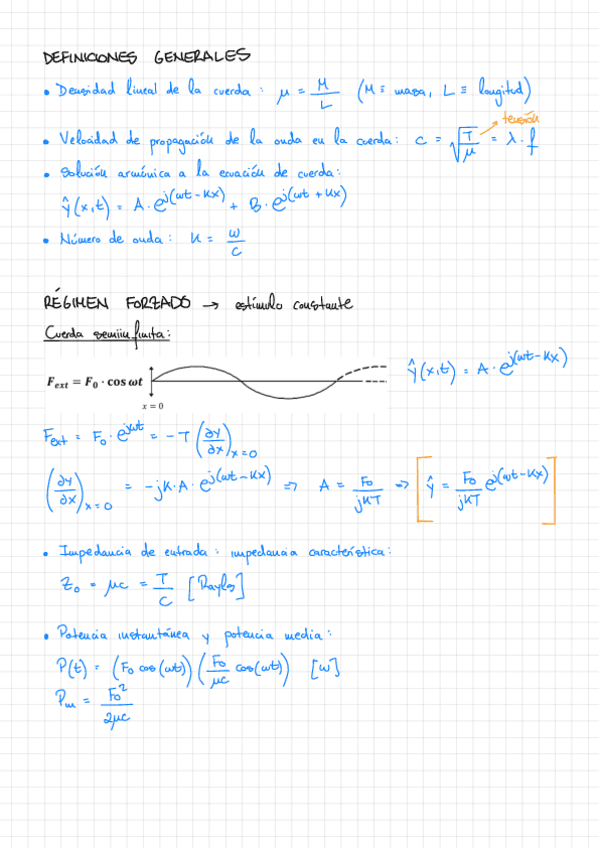 DEFINICIONES GENERALES
• Densidad lineal de la cuerda: μ = M/L (M ≡ masa, L ≡ longitud)
tensión
• Velocidad de propagación de la onda en la cuerda: c = √(T/μ) = λ·f
• Solución armónica a la ecuación de cuerda:
ŷ(x,t) = A·e^j(ωt-kx) + B·e^j(ωt+kx)
• Número de onda: k = ω/c
RÉGIMEN FORZADO → estímulo constante
Cuerda semiinfinita:
ŷ(x,t) = A·e^j(ωt-kx)
F_ext = F_0 · cos ωt
x = 0
F_ext = F_0·e^jωt = -T (∂y/∂x)_x=0
(∂y/∂x)_x=0 = -jk·A·e^j(ωt-kx) ⇒ A = F_0/jkT ⇒ [ŷ = F_0/jkT e^j(ωt-kx)]
• Impedancia de entrada = impedancia característica:
Z_0 = μc = T/c [Rayls]
• Potencia instantánea y potencia media:
P(t) = (F_0 cos(ωt)) (F_0/μc cos(ωt)) [W]
P_m = F_0²/2μc